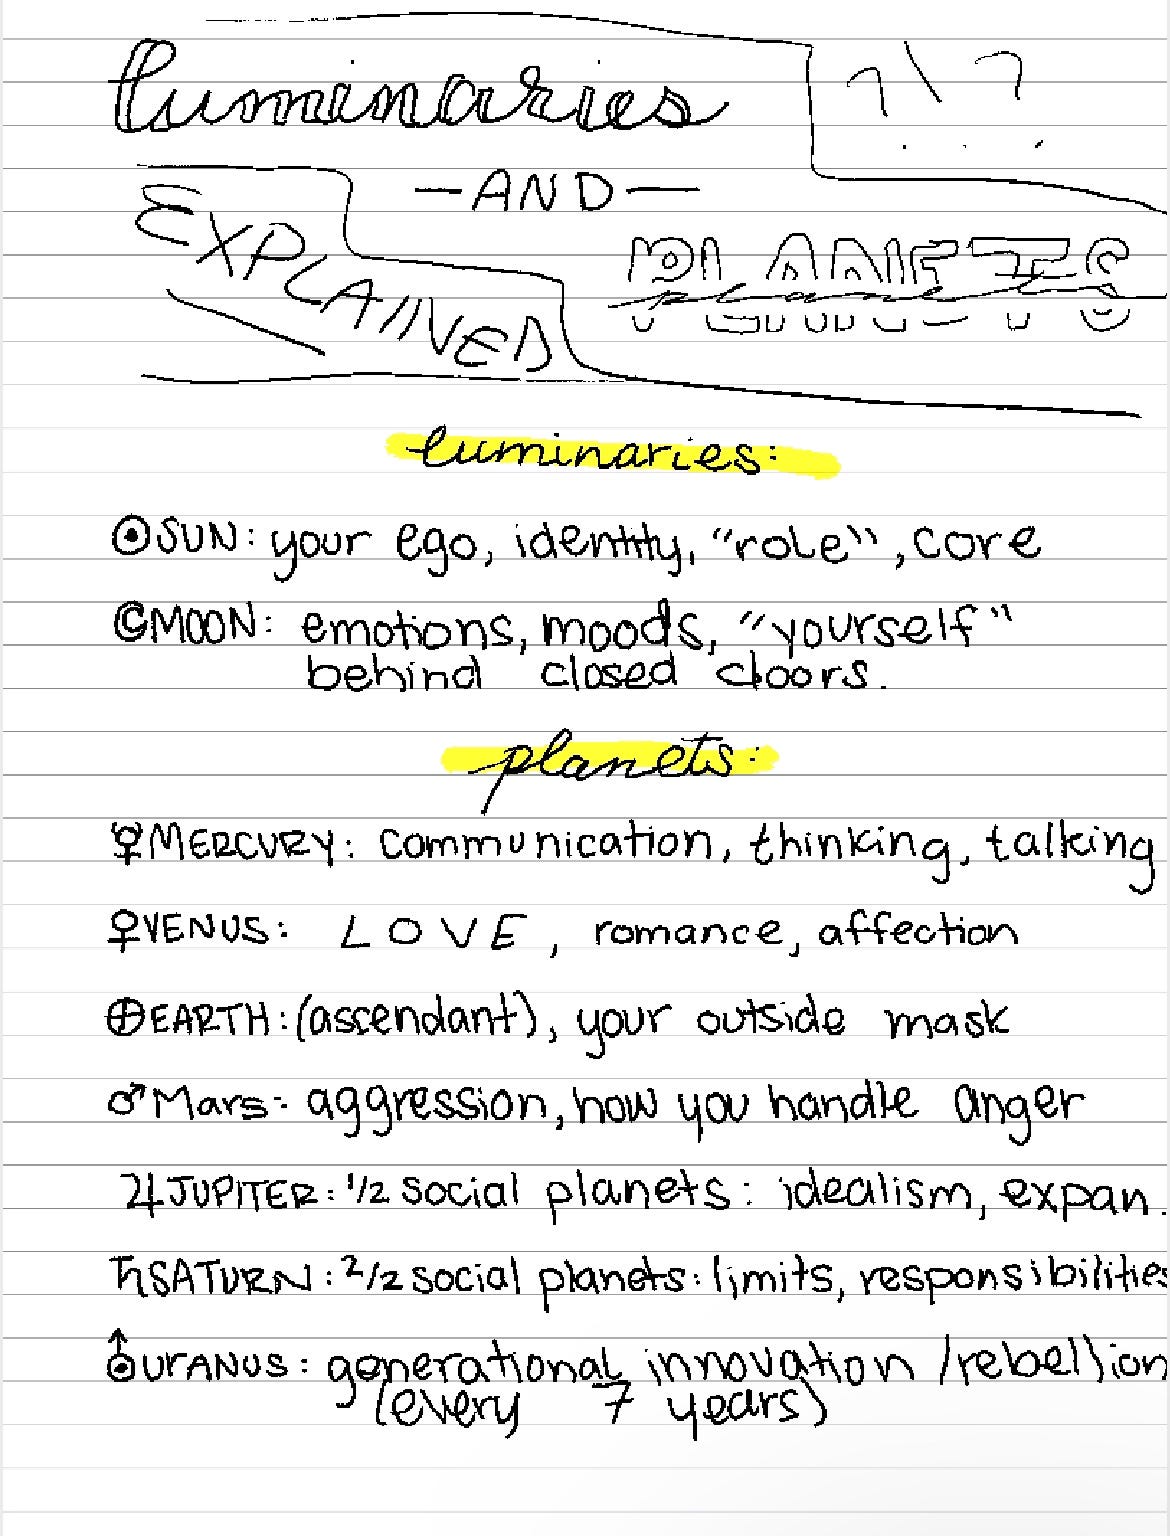 luminaries ? \ ?
—AND—
EXPLAINED
PLANETS
planets
luminaries:
☉SUN: your ego, identity, "role", core
☾MOON: emotions, moods, "yourself"
behind closed doors.
planets:
☿MERCURY: communication, thinking, talking
♀VENUS: LOVE, romance, affection
⊕EARTH: (ascendant), your outside mask
♂Mars: aggression, how you handle anger
♃JUPITER: 1/2 social planets: idealism, expan.
♄SATURN: 2/2 social planets: limits, responsibilities
⛢URANUS: generational innovation /rebellion
(every 7 years)